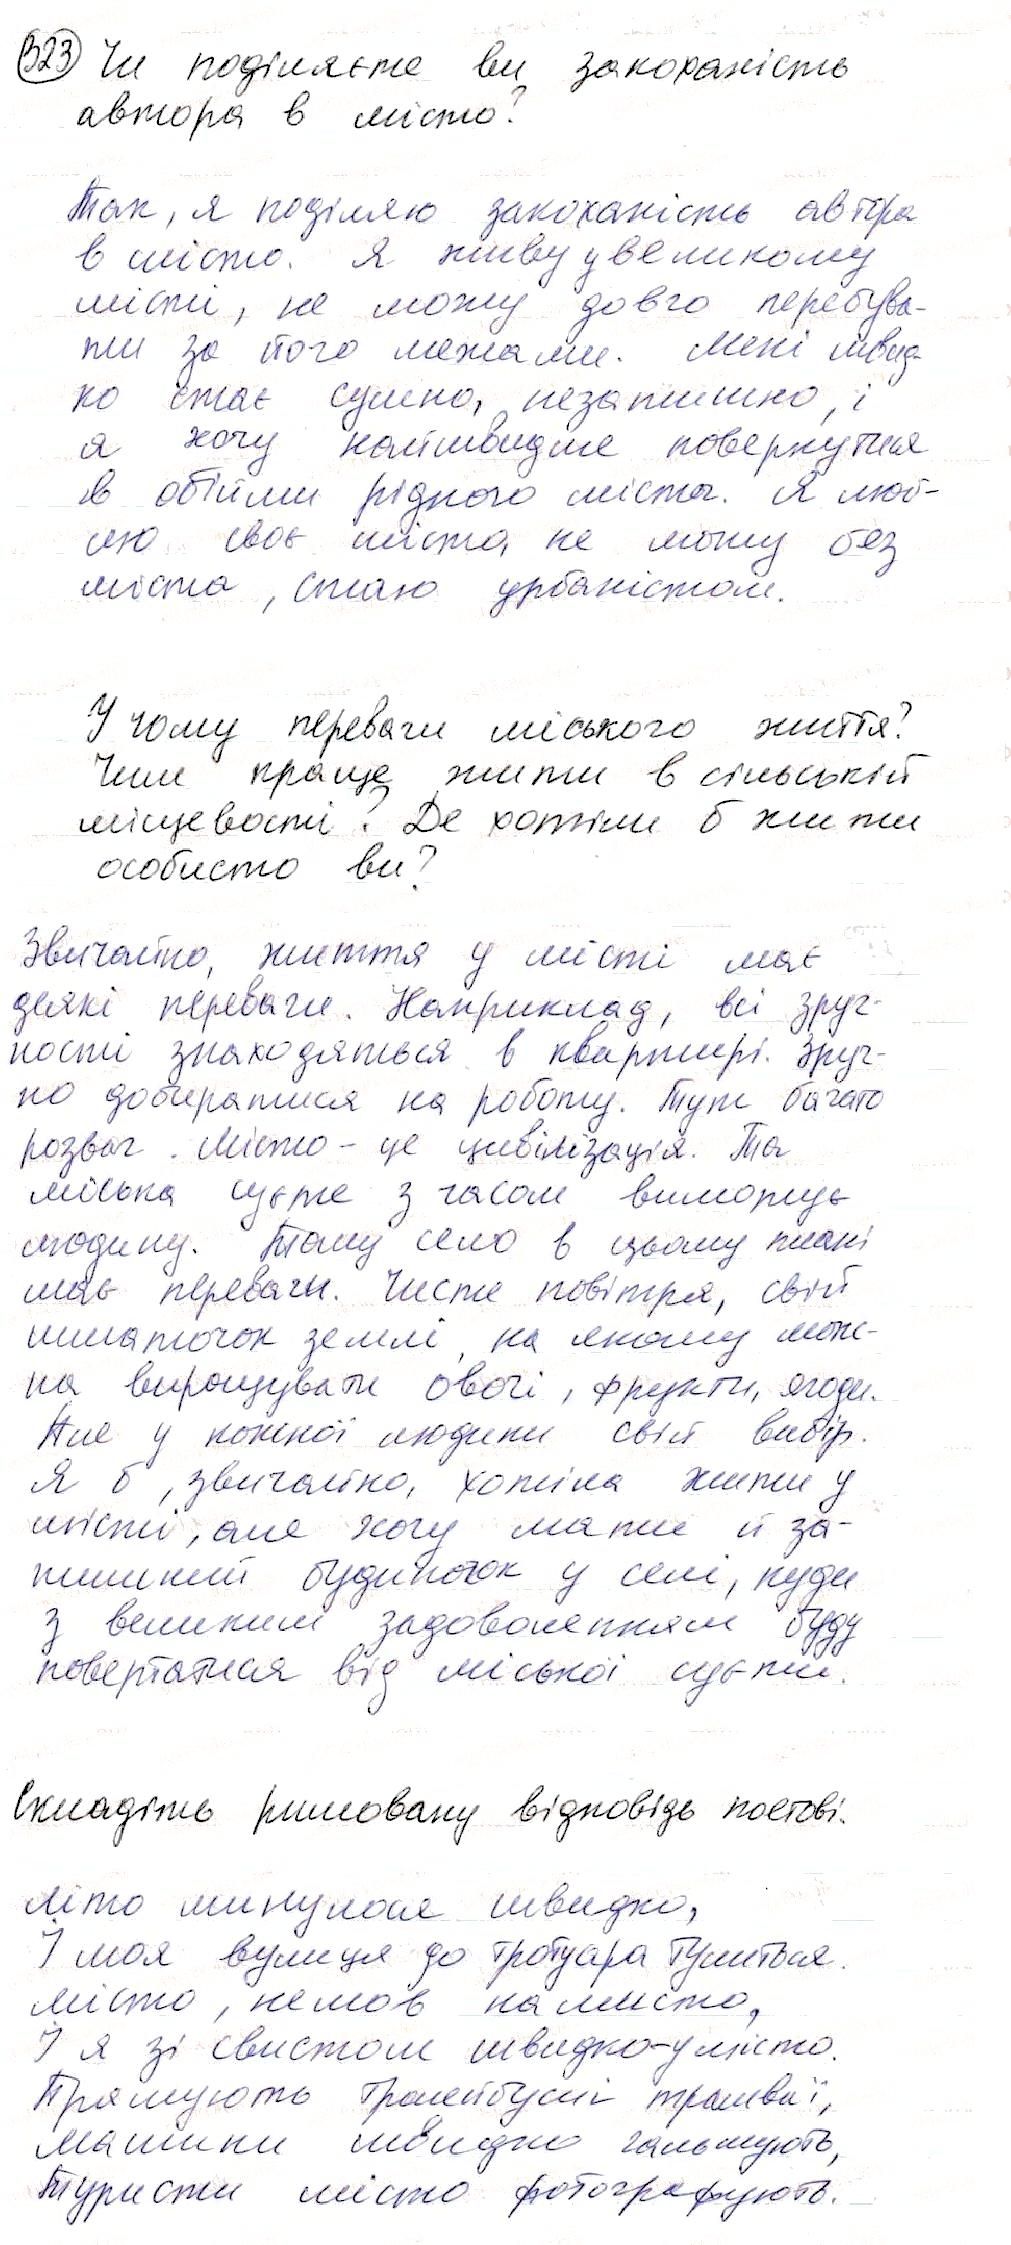 323 Чи поділяєте ви закоханість
автора в місто?
Так, я поділяю закоханість автора
в місто. Я живу у великому
місті, не можу довго перебува-
ти за його межами. Мені швид-
ко стає сумно, незатишно, і
я хочу найшвидше повернутися
в обійми рідного міста. Я люб-
лю своє місто, не можу без
міста, стаю урбаністом.
У чому переваги міського життя?
Чим краще жити в сільській
місцевості? Де хотіли б жити
особисто ви?
Звичайно, життя у місті має
деякі переваги. Наприклад, всі зруч-
ності знаходяться в квартирі. Зруч-
но добиратися на роботу. Тут багато
розваг. Місто - це цивілізація. Та
міська суєта з часом виморює
людину. Тому село в цьому плані
має переваги. Чисте повітря, свій
шматочок землі, на якому мож-
на вирощувати овочі, фрукти, ягоди.
Але у кожної людини свій вибір.
Я б, звичайно, хотіла жити у
місті, але хочу мати й за-
тишний будиночок у селі, куди
з великим задоволенням буду
повертатися від міської суєти.
Складіть римовану відповідь поетові.
Літо минулося швидко,
І моя вулиця до тротуара тулиться.
Місто, немов намисто,
І я зі свистом швидко-у місто.
Прямують тролейбуси і трамваї,
Машини швидко гальмують,
Туристи місто фотографують.